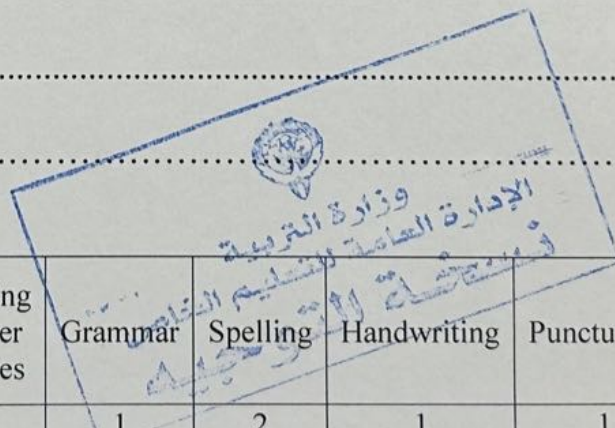 وزارة التربية
الإدارة العامة للتعليم الخاص
نسخة للتوجيه
ng
er
es
Grammar
Spelling
Handwriting
Punctu
1
2
1
1